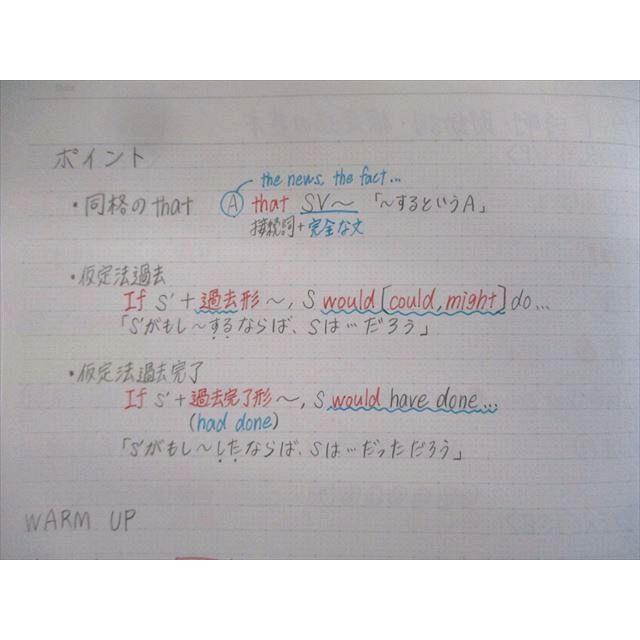 ポイント
the news, the fact...
・同格のthat Ⓐ that SV〜 「〜するというA」
接続詞+完全な文
・仮定法過去
If S'+過去形〜, S would [could, might] do...
「S'がもし〜するならば、Sは…だろう」
・仮定法過去完了
If S'+過去完了形〜, S would have done...
(had done)
「S'がもし〜したならば、Sは…だっただろう」
WARM UP